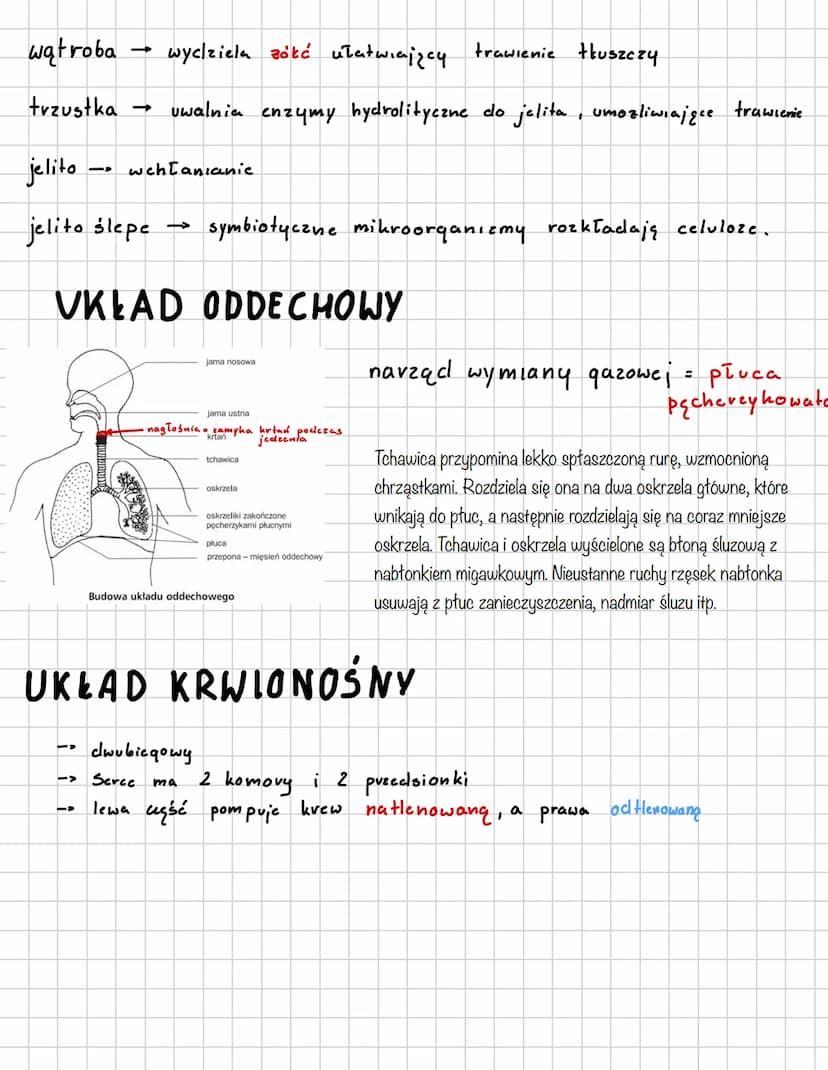 wątroba → wydziela żółć ułatwiający trawienie tłuszczy
trzustka → uwalnia enzymy hydrolityczne do jelita, umożliwiające trawienie
jelito → wchłanianie
jelito ślepe → symbiotyczne mikroorganizmy rozkładają celulozę.
UKŁAD ODDECHOWY
jama nosowa
jama ustna
nagłośnia = zamyka krtań podczas jedzenia
krtań
tchawica
oskrzela
oskrzeliki zakończone
pęcherzykami płucnymi
płuca
przepona – mięsień oddechowy
Budowa układu oddechowego
narząd wymiany gazowej = płuca
pęcherzykowate
Tchawica przypomina lekko spłaszczoną rurę, wzmocnioną
chrząstkami. Rozdziela się ona na dwa oskrzela główne, które
wnikają do płuc, a następnie rozdzielają się na coraz mniejsze
oskrzela. Tchawica i oskrzela wyścielone są błoną śluzową z
nabłonkiem migawkowym. Nieustanne ruchy rzęsek nabłonka
usuwają z płuc zanieczyszczenia, nadmiar śluzu itp.
UKŁAD KRWIONOŚNY
→ dwubiegowy
→ Serce ma 2 komory i 2 przedsionki
→ lewa część pompuje krew natlenowaną, a prawa odtlenowaną